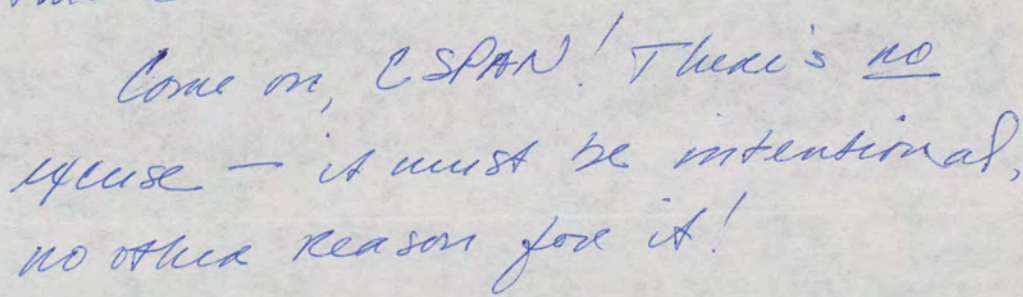 Come on, CSPAN! There's no
excuse — it must be intentional,
no other reason for it!